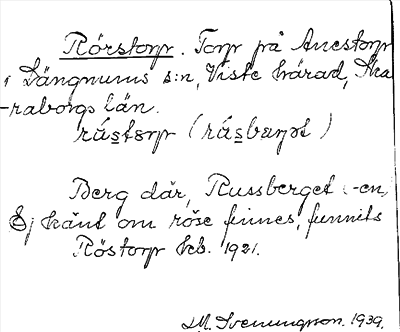 Rörstorp. Torp på Anestorp
i Längnums s:n, Viste härad, Ska-
raborgs län.
råstorp (råsbärjet)
Berg där, Russberget (-en,
Ej känt om röse finnes, funnits
Röstorp kb. 1921.
M. Svenungsson. 1939.